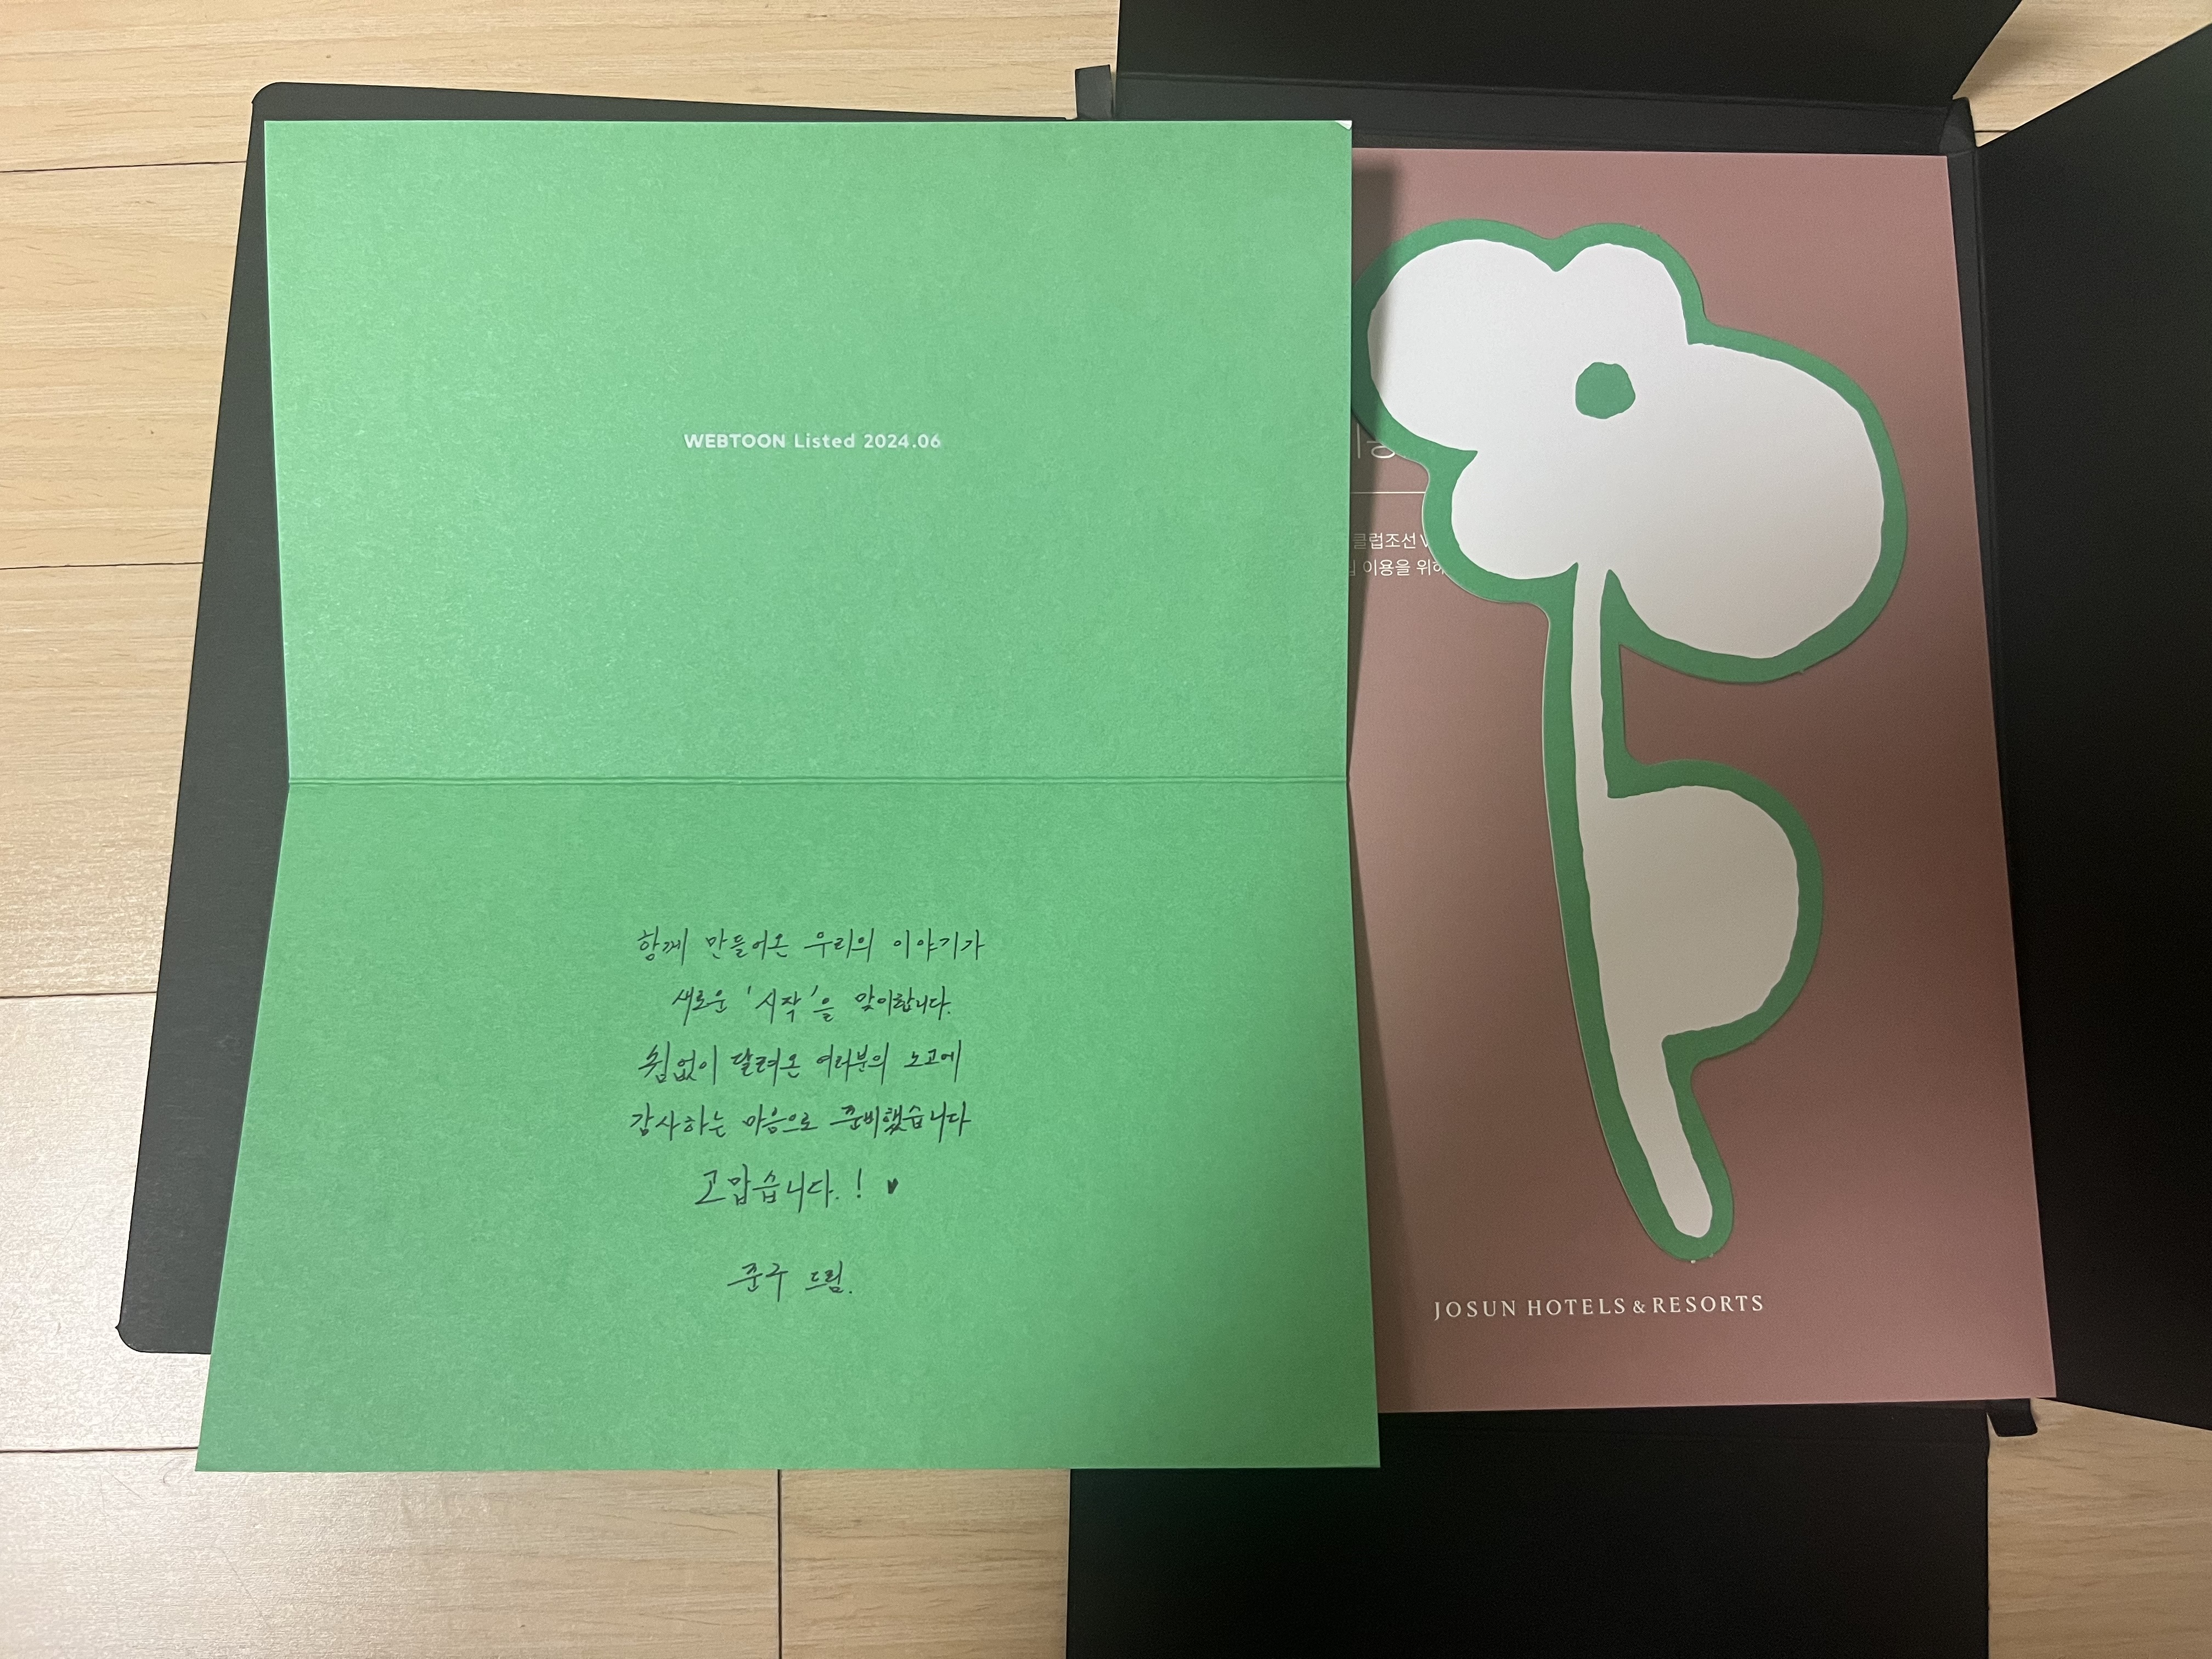 WEBTOON Listed 2024.06
함께 만들어온 우리의 이야기가
새로운 '시작'을 맞이합니다.
쉼없이 달려온 여러분의 노고에
감사하는 마음으로 준비했습니다
고맙습니다!
준구 드림.
클럽조선
이용을 위해
JOSUN HOTELS & RESORTS